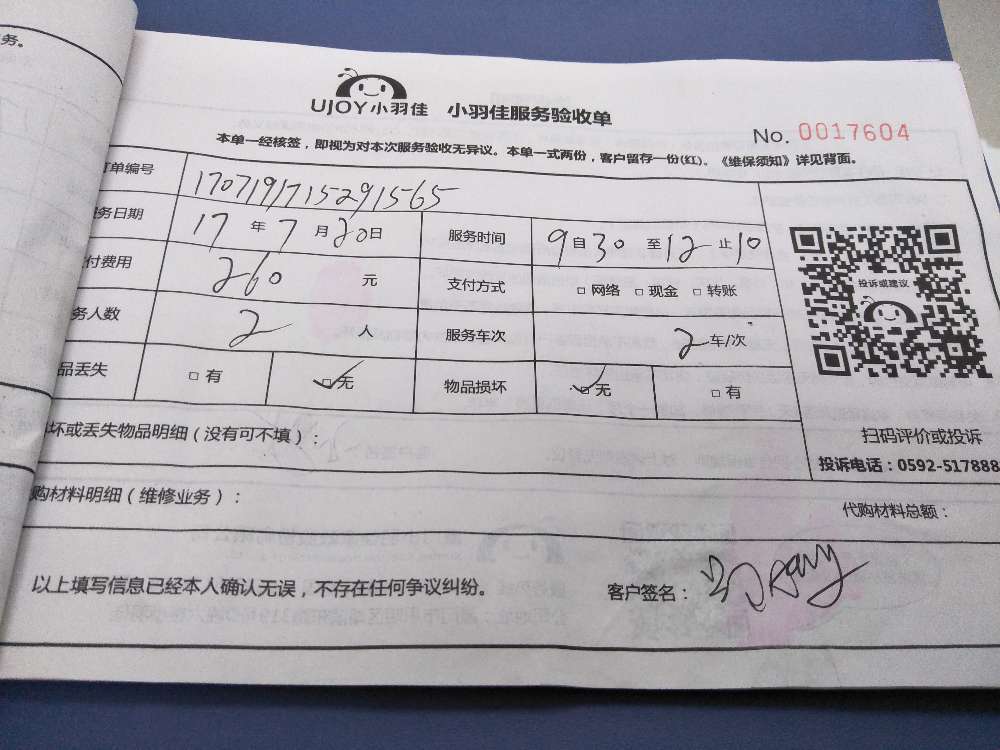 务。
UJOY小羽佳 小羽佳服务验收单
No. 0017604
本单一经核签，即视为对本次服务验收无异议。本单一式两份，客户留存一份(红)、《维保须知》详见背面。
单编号 1707191715291565
务日期 17 年 7 月 20 日 服务时间 9 自 30 至 12 止 10
付费用 260 元 支付方式 □ 网络 □ 现金 □ 转账
务人数 2 人 服务车次 2 车/次
品丢失 □ 有 □ 无 物品损坏 □ 无 □ 有
投诉或建议
坏或丢失物品明细（没有可不填）：
扫码评价或投诉
投诉电话：0592-517888
购材料明细（维修业务）： 代购材料总额：
以上填写信息已经本人确认无误，不存在任何争议纠纷。 客户签名：